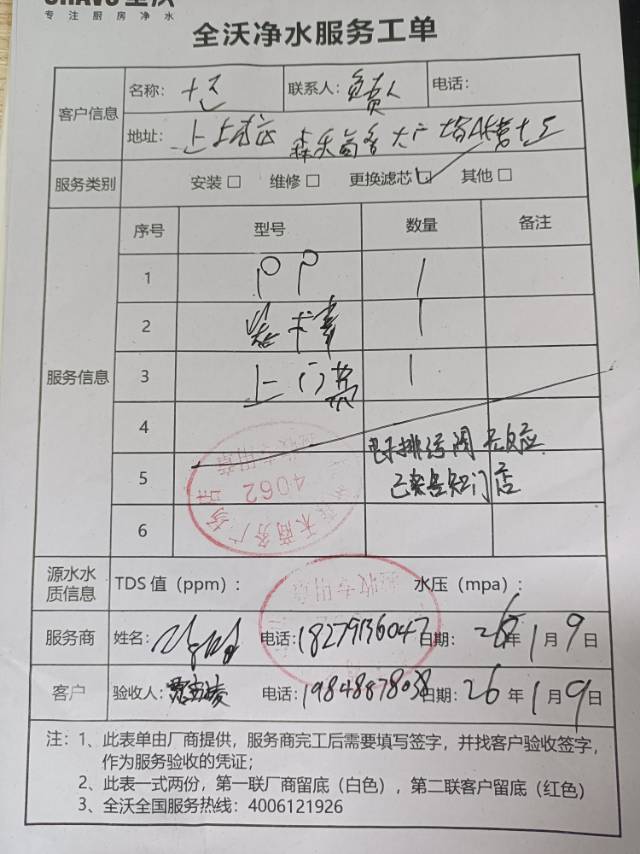 全沃
专注厨房净水
全沃净水服务工单
客户信息
名称：
联系人：负责人
电话：
地址：上 森禾商务大广场A
服务类别
安装□ 维修□ 更换滤芯☑ 其他□
服务信息
序号 型号 数量 备注
1 PP 1
2 1
3 上门费 1
4
电子排污阀无反应
5
已告知门店
6
禾商务广场
4062
验收专用章
验收专用章
源水水质信息
TDS 值（ppm）：
水压（mpa）：
服务商
姓名：
电话：18279136047
日期：26年1月9日
客户
验收人：
电话：19848878038
日期：26年1月9日
注：1、此表单由厂商提供，服务商完工后需要填写签字，并找客户验收签字，
作为服务验收的凭证；
2、此表一式两份，第一联厂商留底（白色），第二联客户留底（红色）
3、全沃全国服务热线：4006121926